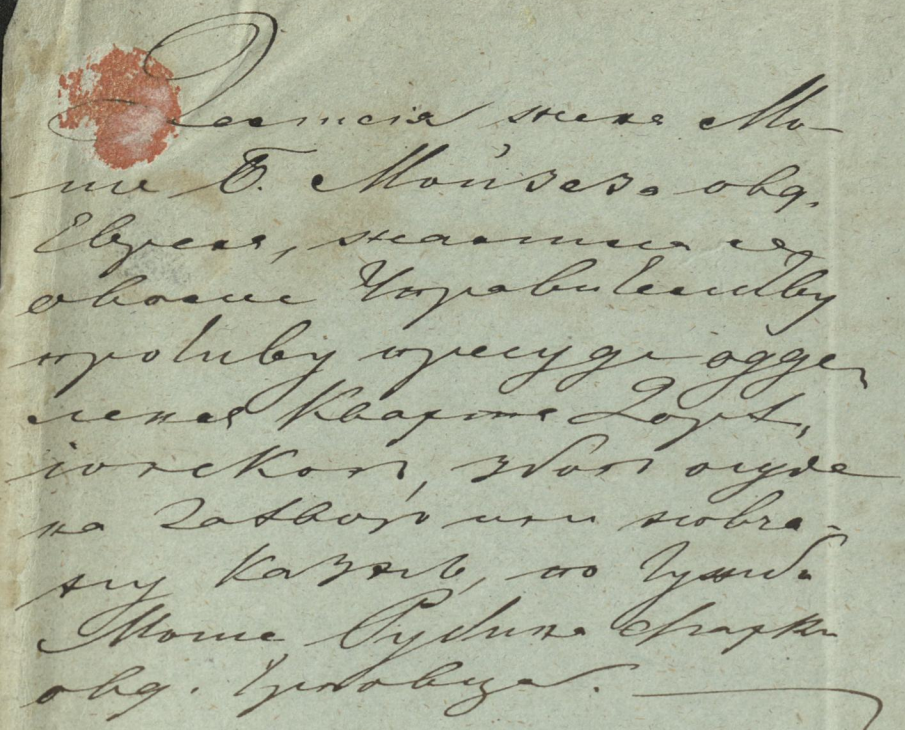 жена Мо-
ше Б. Мойзеза овд.
Евреја, жалила се
овоме Управитељству
противу пресуде одде-
лења Кварта Дорћ,
іолског, због осуде
на Затвор или новча-
ну Казнь, по Тужби
Моше Рубина Чарки
овд. Трговца.